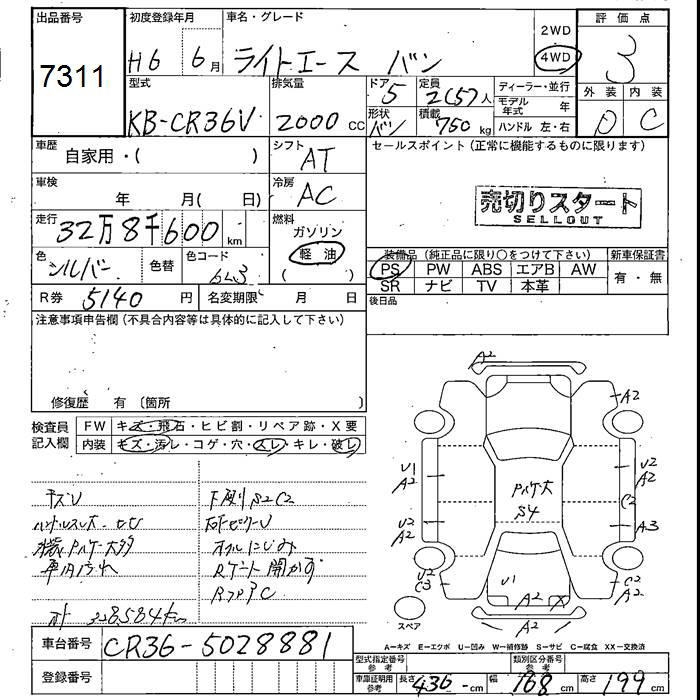 出品番号
7311
初度登録年月
H6 6月
車名・グレード
ライトエース バン
2WD
4WD
評価点
3
型式
KB-CR36V
排気量
2000 CC
ドア
5
形状
バン
定員
2(5)人
積載
750 kg
ディーラー・並行
モデル年式 年
ハンドル 左・右
外装 内装
D C
車歴
自家用・( )
シフト
AT
セールスポイント(正常に機能するものに限ります)
車検
年 月( 日)
冷房
AC
売切りスタート
SELLOUT
走行
32万8千600 km
燃料
ガソリン
軽油
( )
色
シルバー
色替
色コード
6L3
装備品(純正品に限り○をつけて下さい)
新車保証書
PS PW ABS エアB AW
SR ナビ TV 本革
有・無
R券 5140 円
名変期限 月 日
後日品
注意事項申告欄(不具合内容等は具体的に記入して下さい)
修復歴 有 〔箇所 〕
検査員記入欄
FW キズ・飛石・ヒビ割・リペア跡・X要
内装 キズ・汚レ・コゲ・穴・スレ・キレ・破レ
下廻りS2C2
オイルにじみ
328584km
A2
A2
U1
A2
U2
A2
U2
C3
U2
A2
C2
A3
C2
A2
S4
U1
A2 X
A2
スペア
A-キズ E-エクボ U-凹み W-補修跡 S-サビ C-腐食 XX-交換済
車台番号
CR36-5028881
登録番号
型式指定番号
参考
類別区分番号
参考
車庫証明用
参考
長さ 436-cm
幅 168 cm
高さ 199 cm